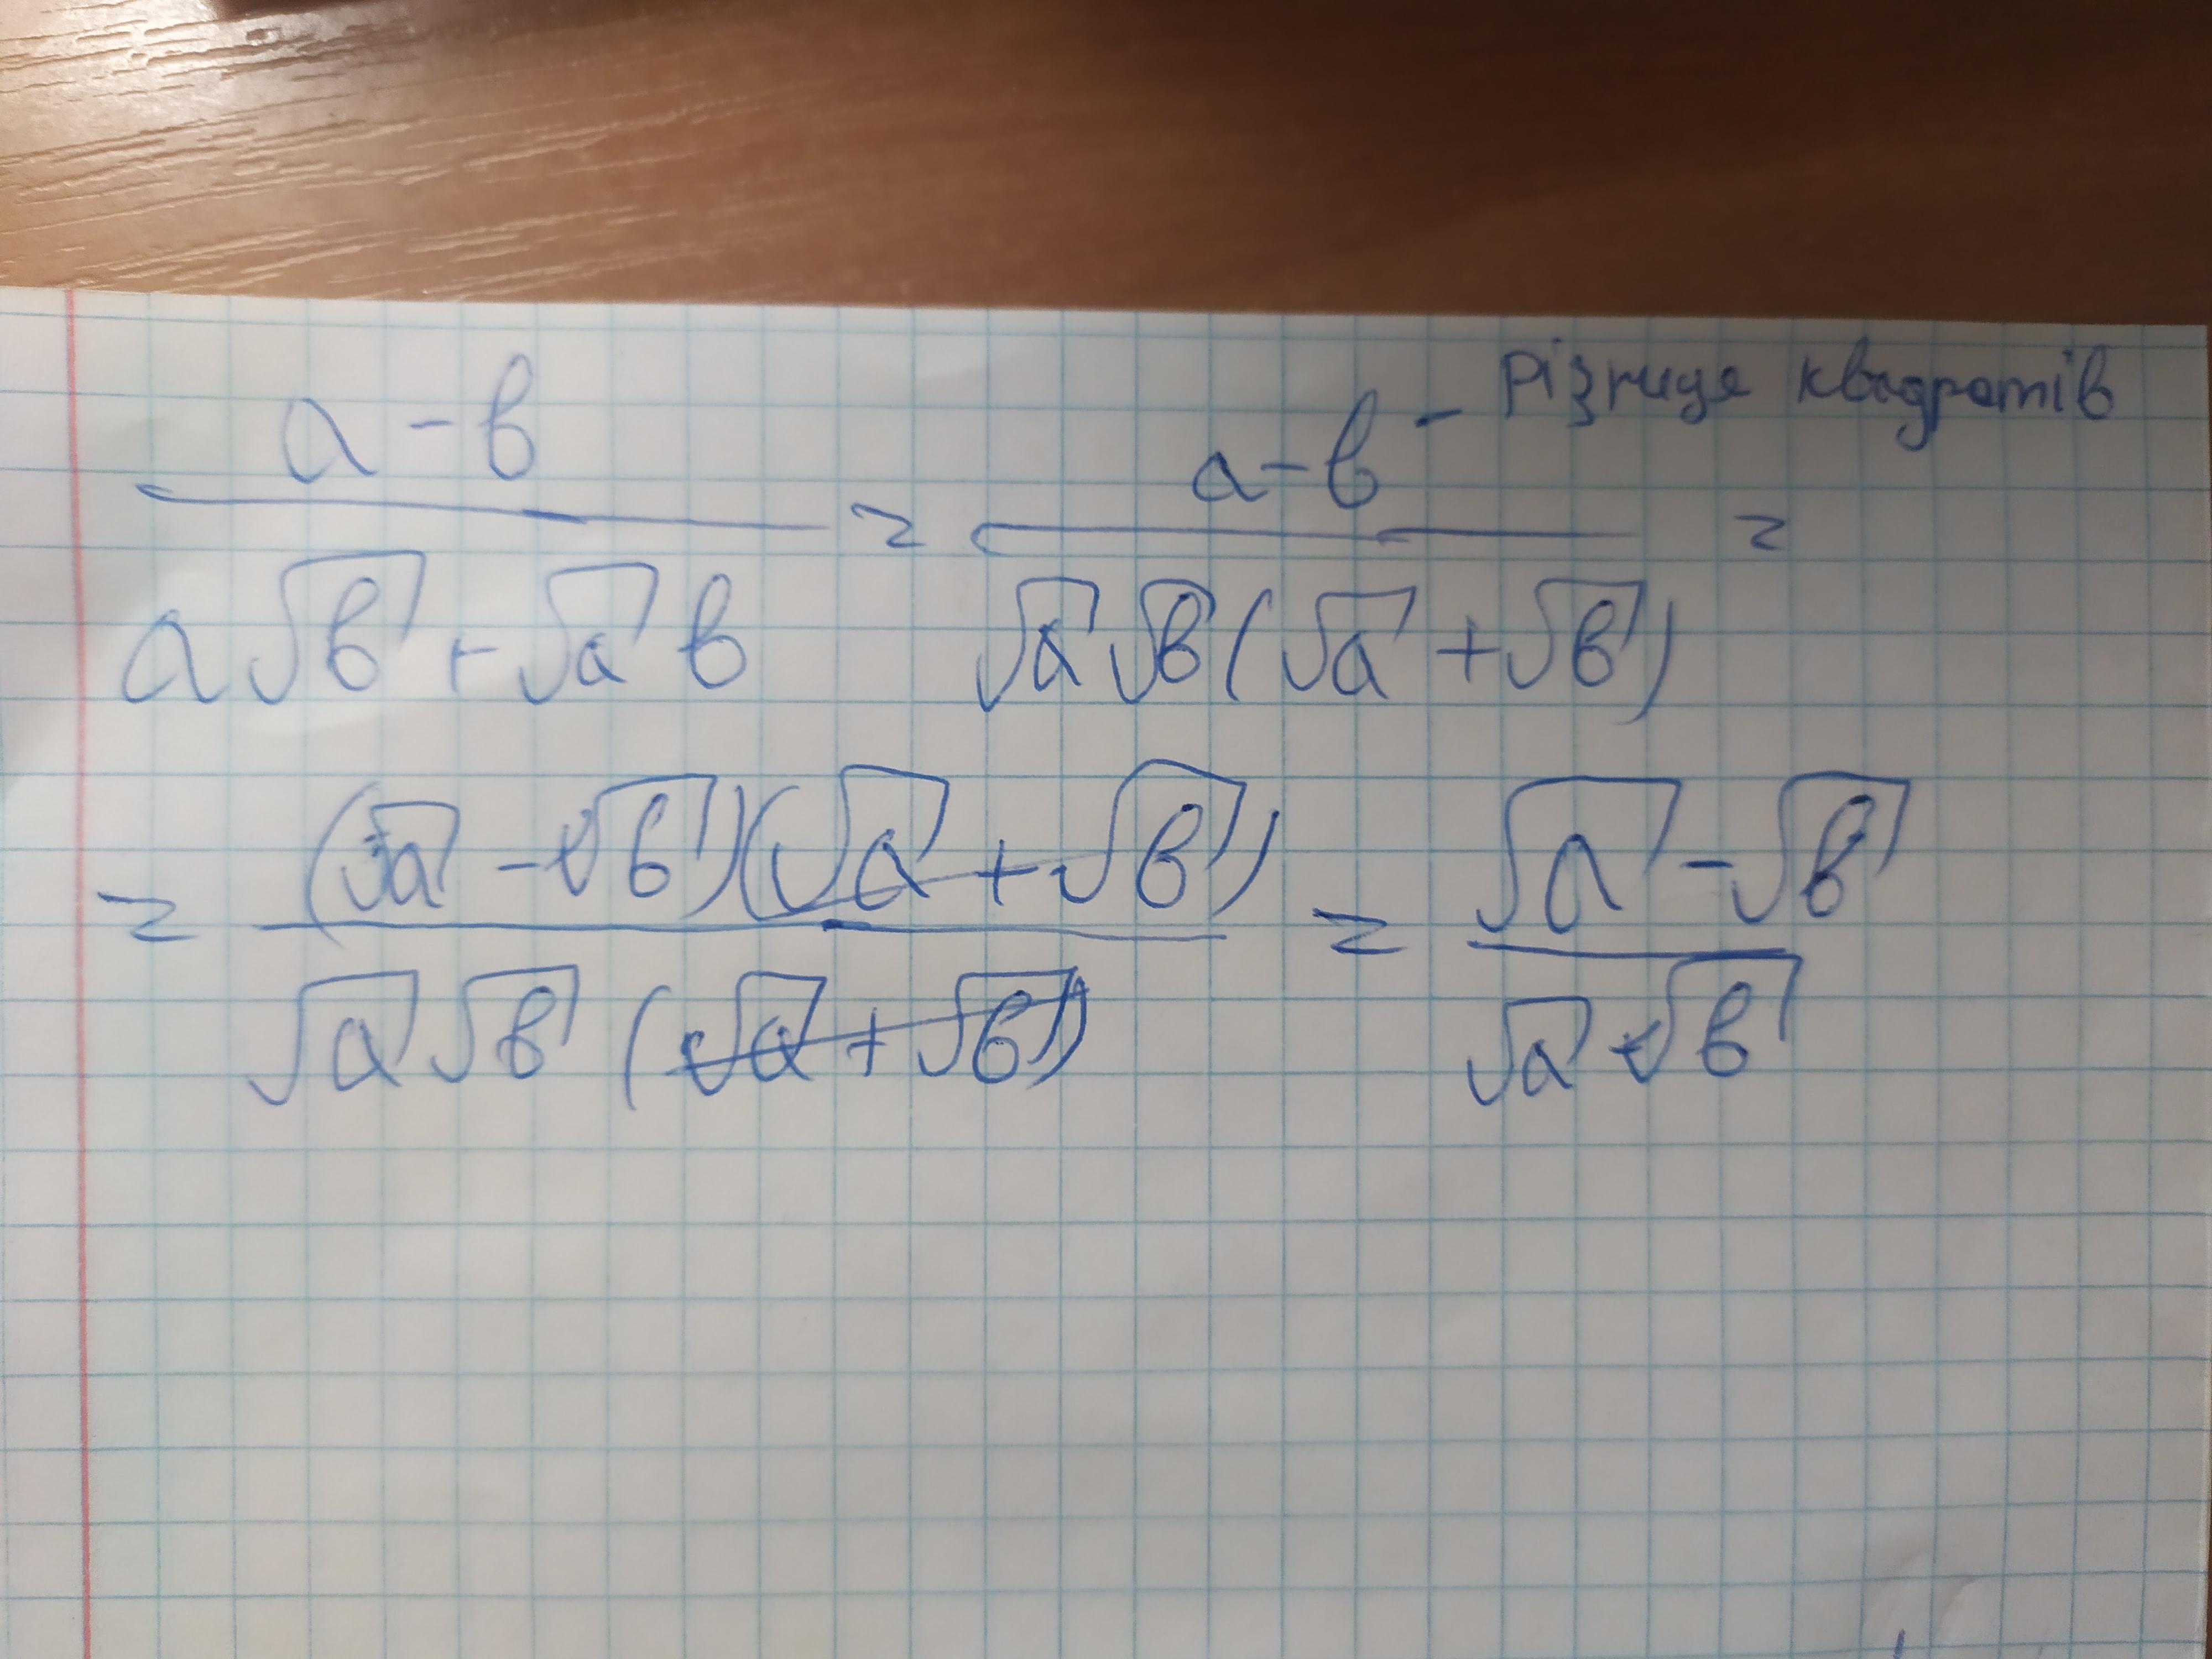 a-b / a√b + √a b = a-b - різниця квадратів / √a √b (√a + √b) =
= (√a - √b)(√a + √b) / √a √b (√a + √b) = √a - √b / √a √b